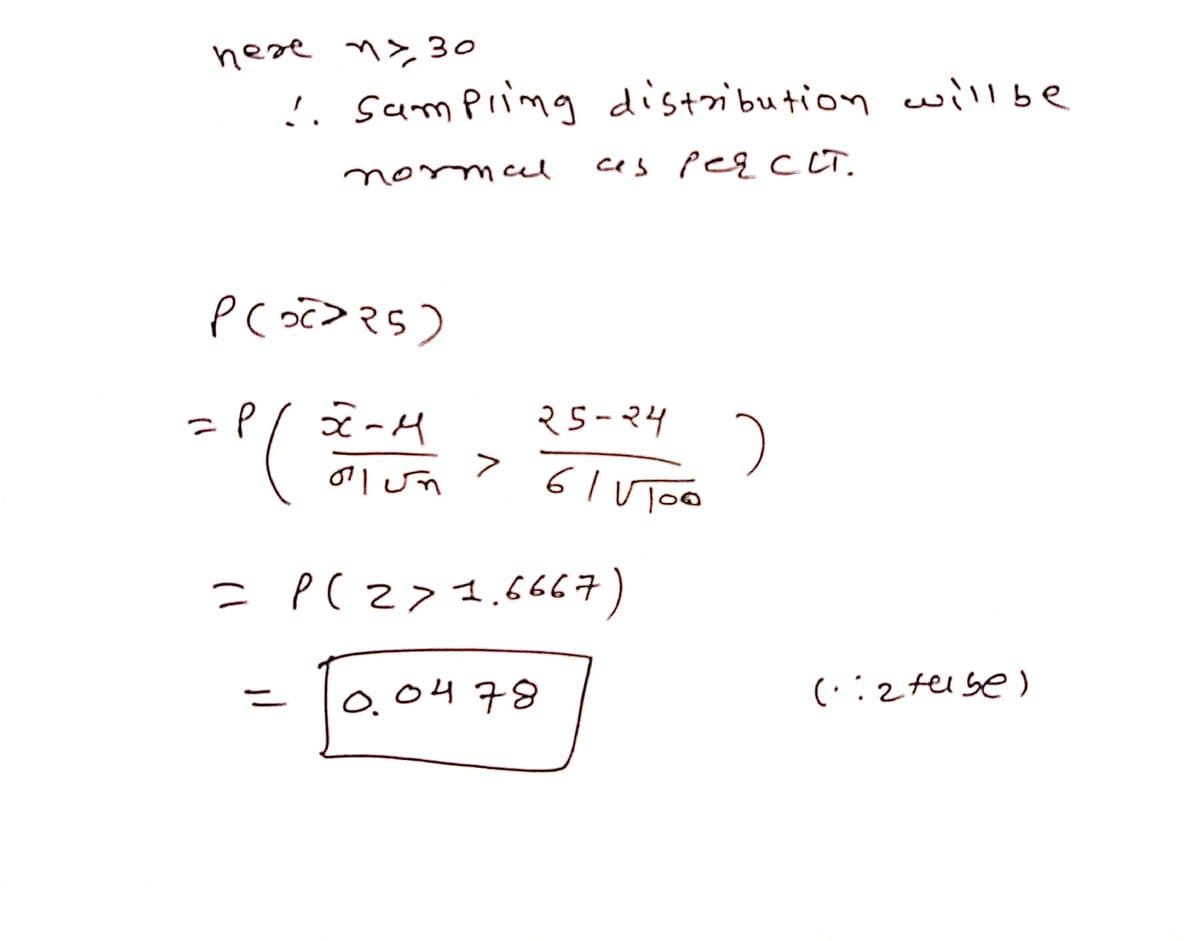 here n ≥ 30
∴ Sampling distribution will be
normal as per CLT.
P(x̄ > 25)
= P( (x̄ - μ) / (σ/√n) > (25 - 24) / (6/√100) )
= P(Z > 1.6667)
= 0.0478 (∵ z table)